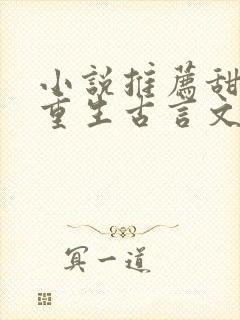 小說推薦甜
重生古言文
冥一道